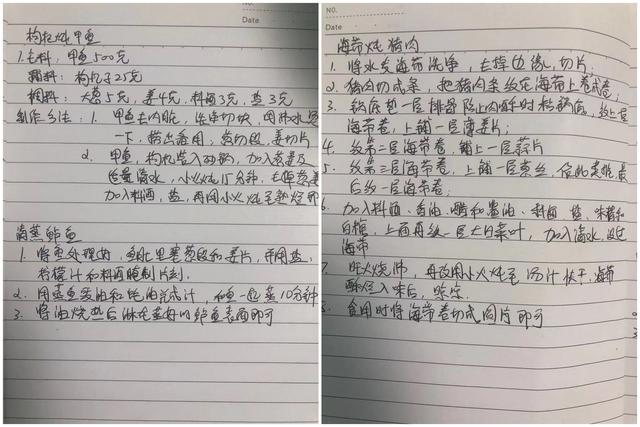 Date
枸杞炖甲鱼
1.主料:甲鱼500克
辅料:枸杞子25克
调料:大葱5克,姜4克,料酒3克,盐3克
制作方法:1.甲鱼去内脏,连净切块,用沸水
一下,捞出备用,葱切段,姜切片
2.甲鱼,枸杞装入砂锅,加入葱姜及
适量清水,小火炖15分钟,去掉葱姜
加入料酒,盐,再用小火炖至熟烂即
清蒸鲈鱼
1.将鱼处理好,鱼肚里塞葱段和姜片,并用盐,
柠檬汁和料酒腌制片刻.
2.用蒸鱼豉油和蚝油兑成汁,和鱼一起蒸10分钟
3.将油烧热后淋在蒸好的鲈鱼表面即可
NO.
Date
海带炖猪肉
1.将水发海带洗净,去掉边缘,切片;
2.猪肉切成条,把猪肉条放在海带上卷成卷;
3.锅底垫一层排骨防止肉酥时粘锅底,放上层
海带卷,上铺一层薄姜片;
4.放第二层海带卷,铺上一层蒜片
5.放第三层海带卷,上铺一层葱丝,依此类推最
后放一层海带卷;
6.加入料酒、香油、醋和酱油、料酒、盐、味精和
白糖,上面再放一层大白菜叶,加入清水,没过
海带
7.旺火烧沸,再改用小火炖至汤汁快干,海带
酥烂入味后,晾凉.
8.食用时将海带卷切成圆片即可